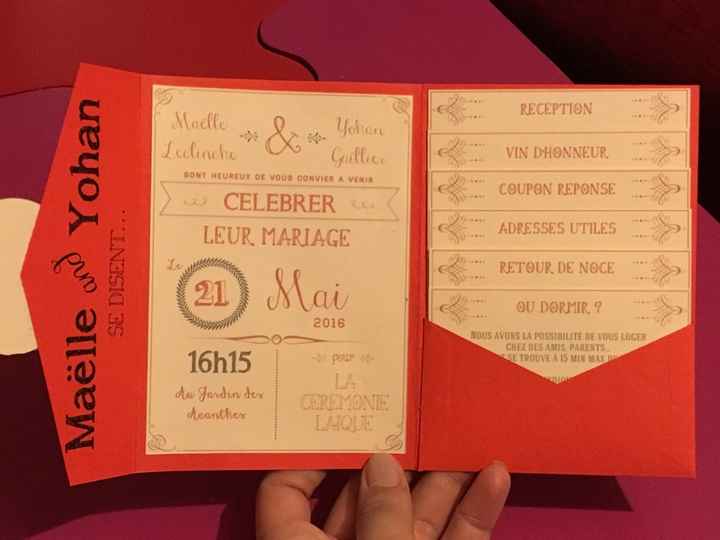 Maëlle and Yohan
SE DISENT...
Maëlle & Yohan
Leclinche Gaillier
SONT HEUREUX DE VOUS CONVIER A VENIR
CELEBRER
LEUR MARIAGE
Le 21 Mai
2016
16h15
Au Jardin des
Acanthes
pour
LA
CEREMONIE
LAIQUE
RECEPTION
VIN D'HONNEUR
COUPON REPONSE
ADRESSES UTILES
RETOUR DE NOCE
OU DORMIR ?
NOUS AVONS LA POSSIBILITE DE VOUS LOGER
CHEZ DES AMIS, PARENTS...
SE TROUVE A 15 MIN MAX